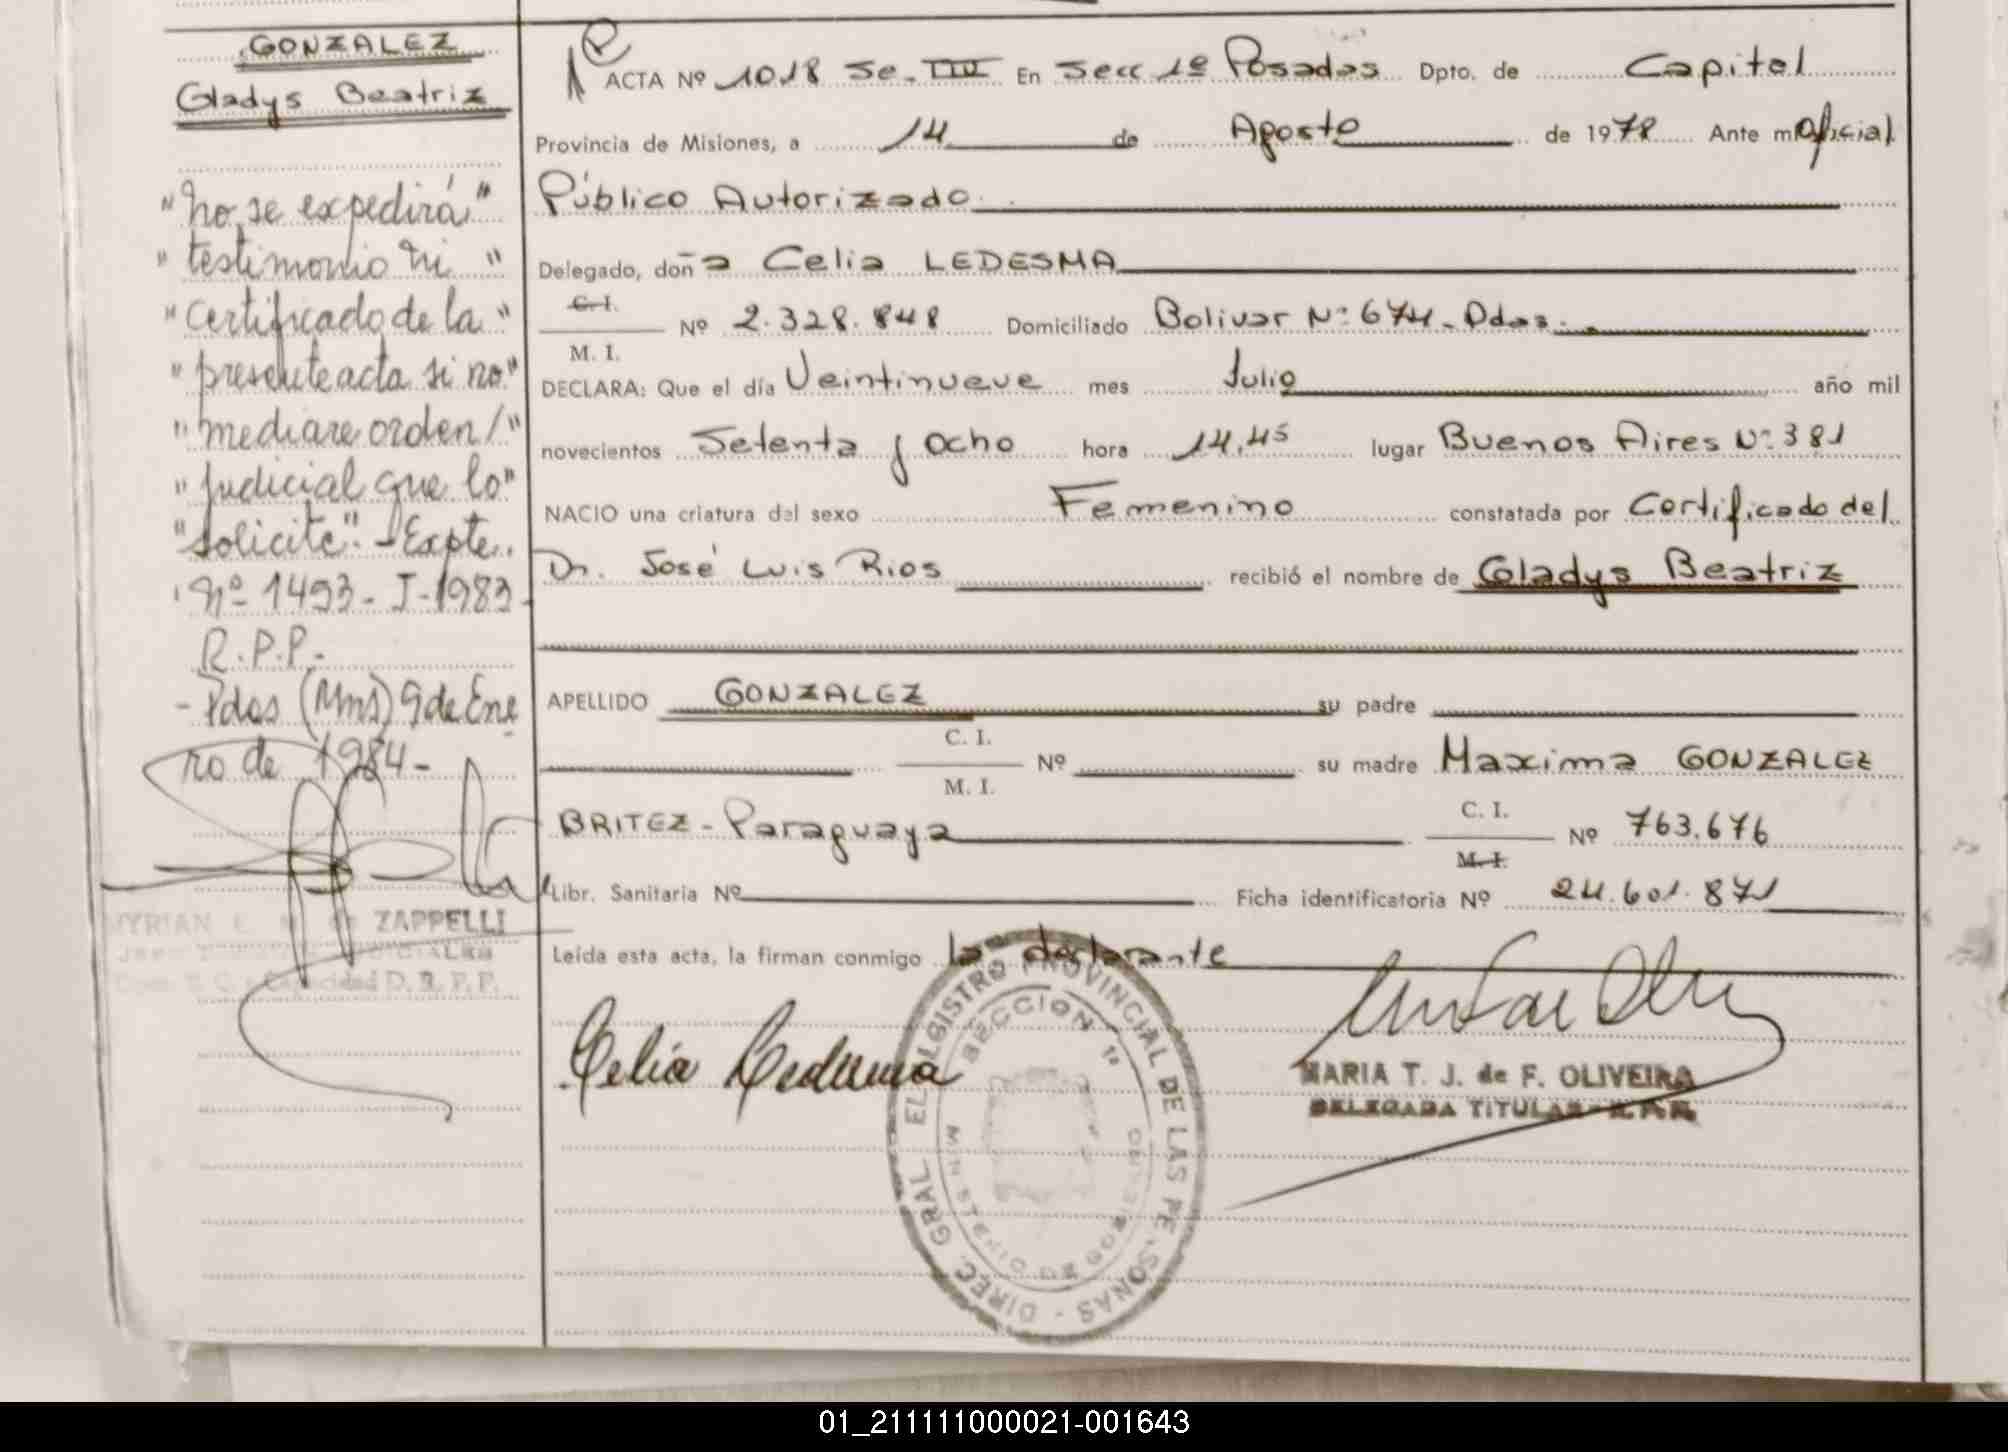 GONZALEZ
Gladys Beatriz
"no se expedirá"
"testimonio ni"
"certificado de la"
"presente acta si no"
"mediare orden/"
"judicial que lo"
"solicite". - Expte.
Nº 1493 - J - 1983 -
R.P.P. -
- Pdas (Mns) 9 de Ene
ro de 1984 -
ZAPPELLI
ACTA Nº 1018 En Secc 1º Posadas Dpto. de Capital
Provincia de Misiones, a 14 de Agosto de 1978 Ante mi Oficial
Público Autorizado
Delegado, doña Celia LEDESMA
C. I.
Nº 2.328.848 Domiciliado Bolivar Nº 674 - Pdas.
M. I.
DECLARA: Que el día Veintinueve mes Julio año mil
novecientos Setenta y Ocho hora 14,45 lugar Buenos Aires Nº 381
NACIO una criatura del sexo Femenino constatada por Certificado del
Dr. José Luis Rios recibió el nombre de Gladys Beatriz
APELLIDO GONZALEZ su padre
C. I.
Nº su madre Maxima GONZALEZ
M. I.
BRITEZ - Paraguaya C. I. Nº 763.676
M. I.
Libr. Sanitaria Nº Ficha identificatoria Nº 24.601.871
Leída esta acta, la firman conmigo la declarante
Celia Ledesma
MARIA T. J. de F. OLIVEIRA
DELEGADA TITULAR
DIREC. GRAL. EL REGISTRO PROVINCIAL DE LAS PERSONAS
SECCION 1ª
MINISTERIO DE GOBIERNO
01_211111000021-001643